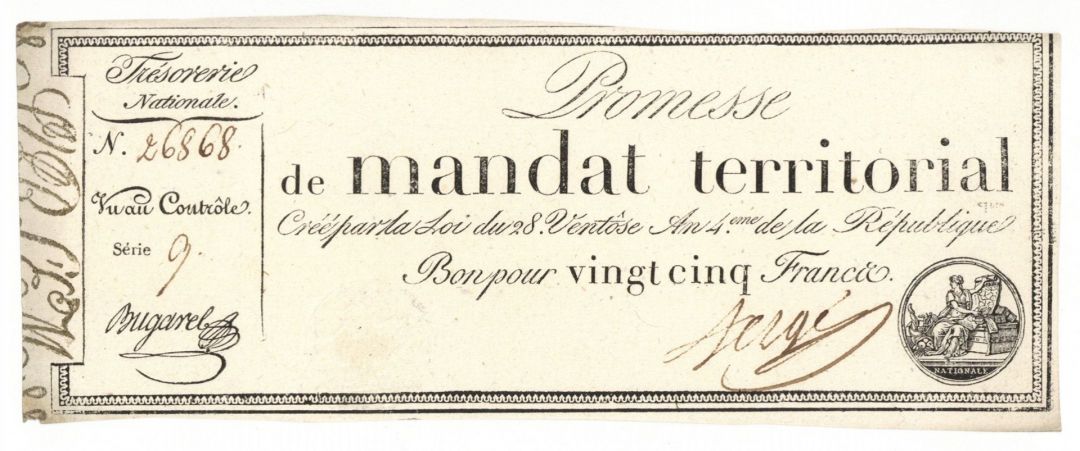 Trésorerie
Nationale.
N. 26868.
Vu au Contrôle.
Série 9.
Bugarel
Promesse
de mandat territorial
Créé par la Loi du 28. Ventôse An 4.eme de la République
Bon pour vingt cinq Francs.
NATIONALE